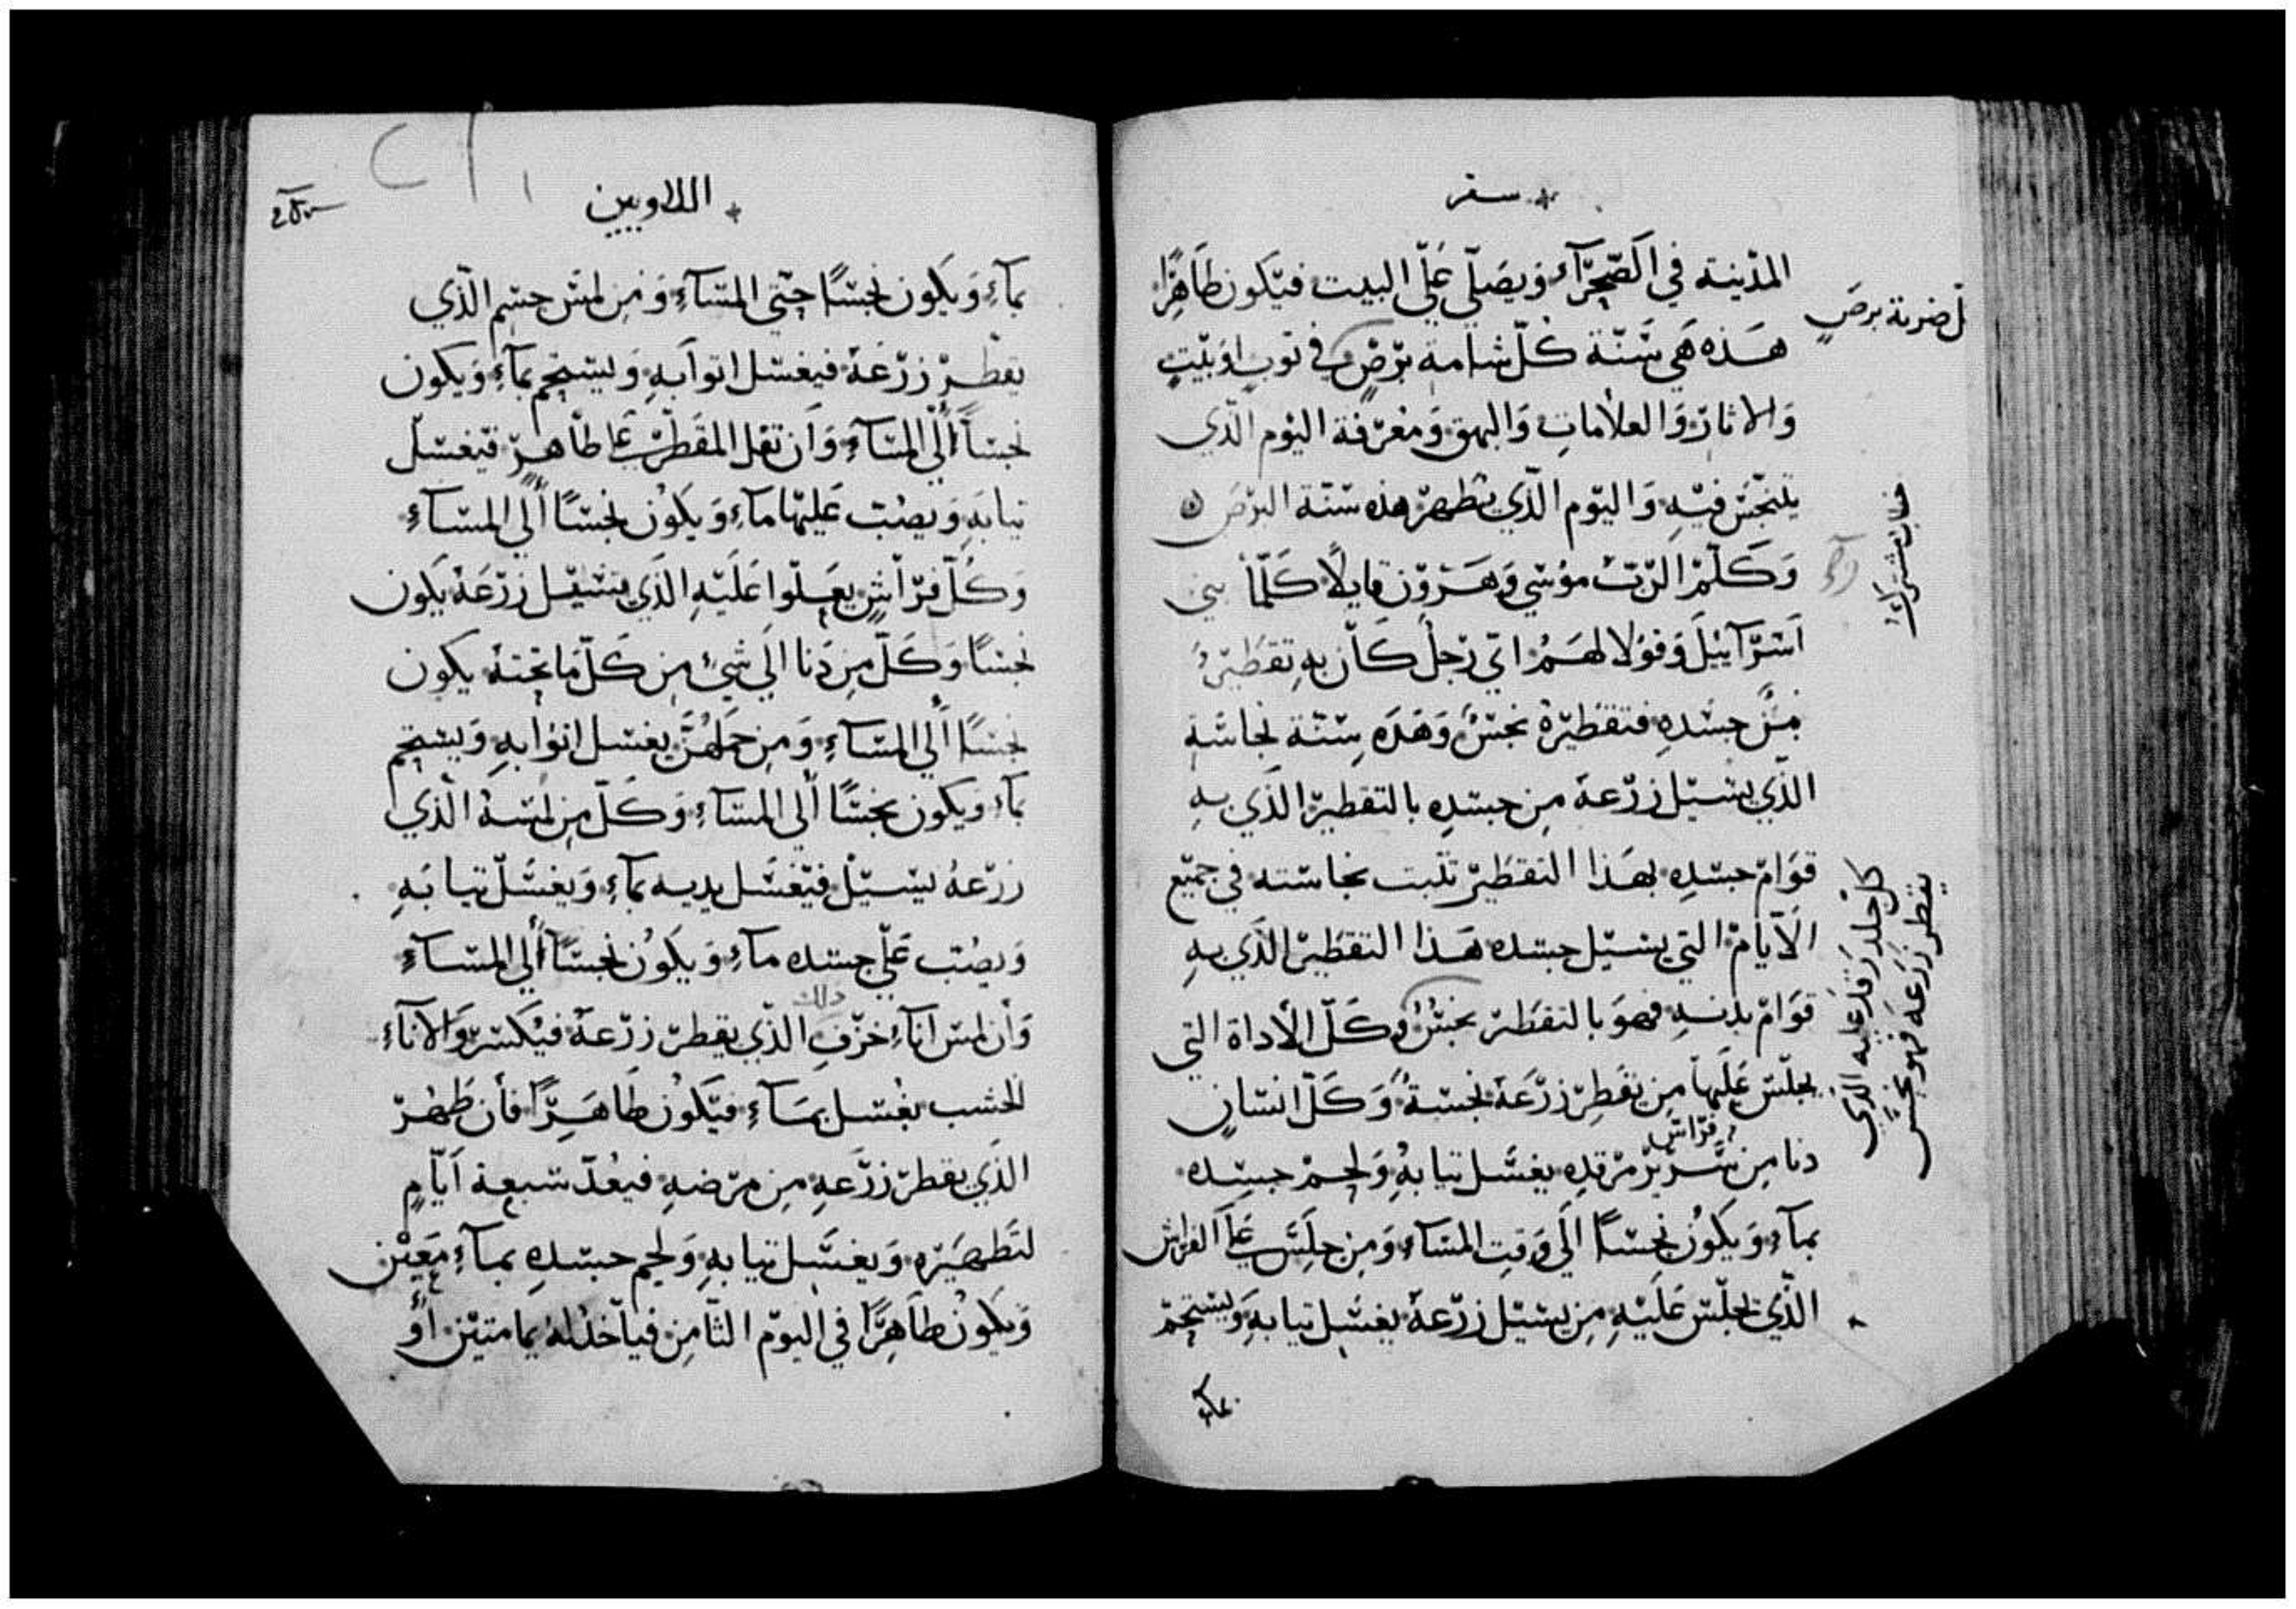 سفر
المدينة في الصحرآء ويصلي علي البيت فيكون طاهرًا
هذه هي سنة كل شامة برص في توب او بيت
والاثار والعلامات والبهق ومعرفة اليوم الذي
يتنجس فيه واليوم الذي يطهر هذه سنة البرص
وكلم الرب موسي وهرون قايلاً كلما بني
اسرآييل وقولا لهم اي رجل كان به تقطير
من جسده فتقطيره نجس وهذه سنة نجاسة
الذي يسيل زرعه من جسده بالتقطير الذي به
قوام جسده بهذا التقطير تثبت نجاسته في جميع
الايام التي يسيل جسده هذا التقطير الذي به
قوام بدنه فهو بالتقطر نجس وكل الأداة التي
يجلس عليها من تقطر زرعه نجسة وكل انسان
دنا من سرير مرقده يغسل تيابه ولحم جسده
فراش
بمآء ويكون نجسًا الي وقت المسآء ومن جلس علي الفراش
الذي يجلس عليه من يسيل زرعه يغسل تيابه ويستحم
لضربة برص
كل جلد رقد عليه الذي
يقطر زرعه فهو نجس
اللاويين
بمآء ويكون نجسًا حتي المسآء ومن لمس جسم الذي
يقطر زرعه فيغسل اتوابه ويستحم بمآء ويكون
نجسًا الي المسآء وان تفل المقطر علي طاهر فيغسل
تيابه ويصب عليها مآء ويكون نجسًا الي المسآء
وكل فراش يعلوا عليه الذي يسيل زرعه يكون
نجسًا وكل من دنا الي شيء من كل ما تحته يكون
نجسًا الي المسآء ومن حملهن يغسل اتوابه ويستحم
بمآء ويكون نجسًا الي المسآء وكل من لمسه الذي
زرعه يسيل فيغسل يديه بمآء ويغسل تيابه
ويصب علي جسده مآء ويكون نجسًا الي المسآء
وأن لمس انآء خزف الذي يقطر زرعه فيكسر والانآء
دلك
الخشب يغسل بمآء فيكون طاهرًا فأن طهر
الذي يقطر زرعه من مرضه فيعد سبعة ايام
لتطهيره ويغسل تيابه ولحم جسده بمآء معين
ويكون طاهرًا في اليوم الثامن فيأخذ له يمامتين أو